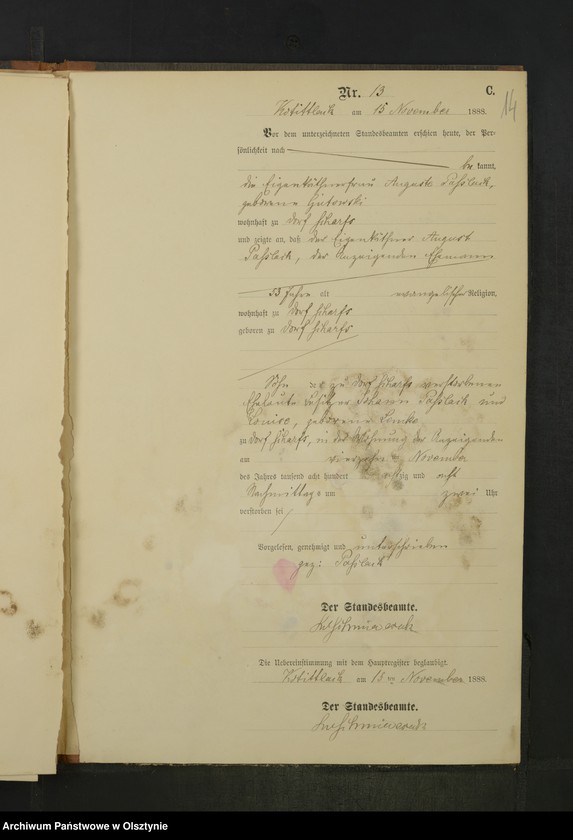 Nr. 13 C. 14
am 15 November 1888.
Vor dem unterzeichneten Standesbeamten erschien heute, der Per-
sönlichkeit nach
be kannt,
die Eigenthümerfrau Auguste Passlack,
geborene Gutowski
wohnhaft zu Dorf
und zeigte an, daß der Eigenthümer August
Passlack, der Anzeigenden Ehemann
53 Jahre alt evangelischer Religion,
wohnhaft zu Dorf
geboren zu Dorf
Sohn der zu Dorf verstorbenen
Eheleute Besitzer Johann Passlack und
Louise, geborene Lemke
zu Dorf in der Wohnung der Anzeigenden
am vierzehnten November
des Jahres tausend acht hundert achtzig und acht
Nachmittags um zwei Uhr
verstorben sei
Vorgelesen, genehmigt und unterschrieben
gez: Passlack
Der Standesbeamte.
Die Uebereinstimmung mit dem Hauptregister beglaubigt.
am 15 ten November 1888.
Der Standesbeamte.
Archiwum Państwowe w Olsztynie